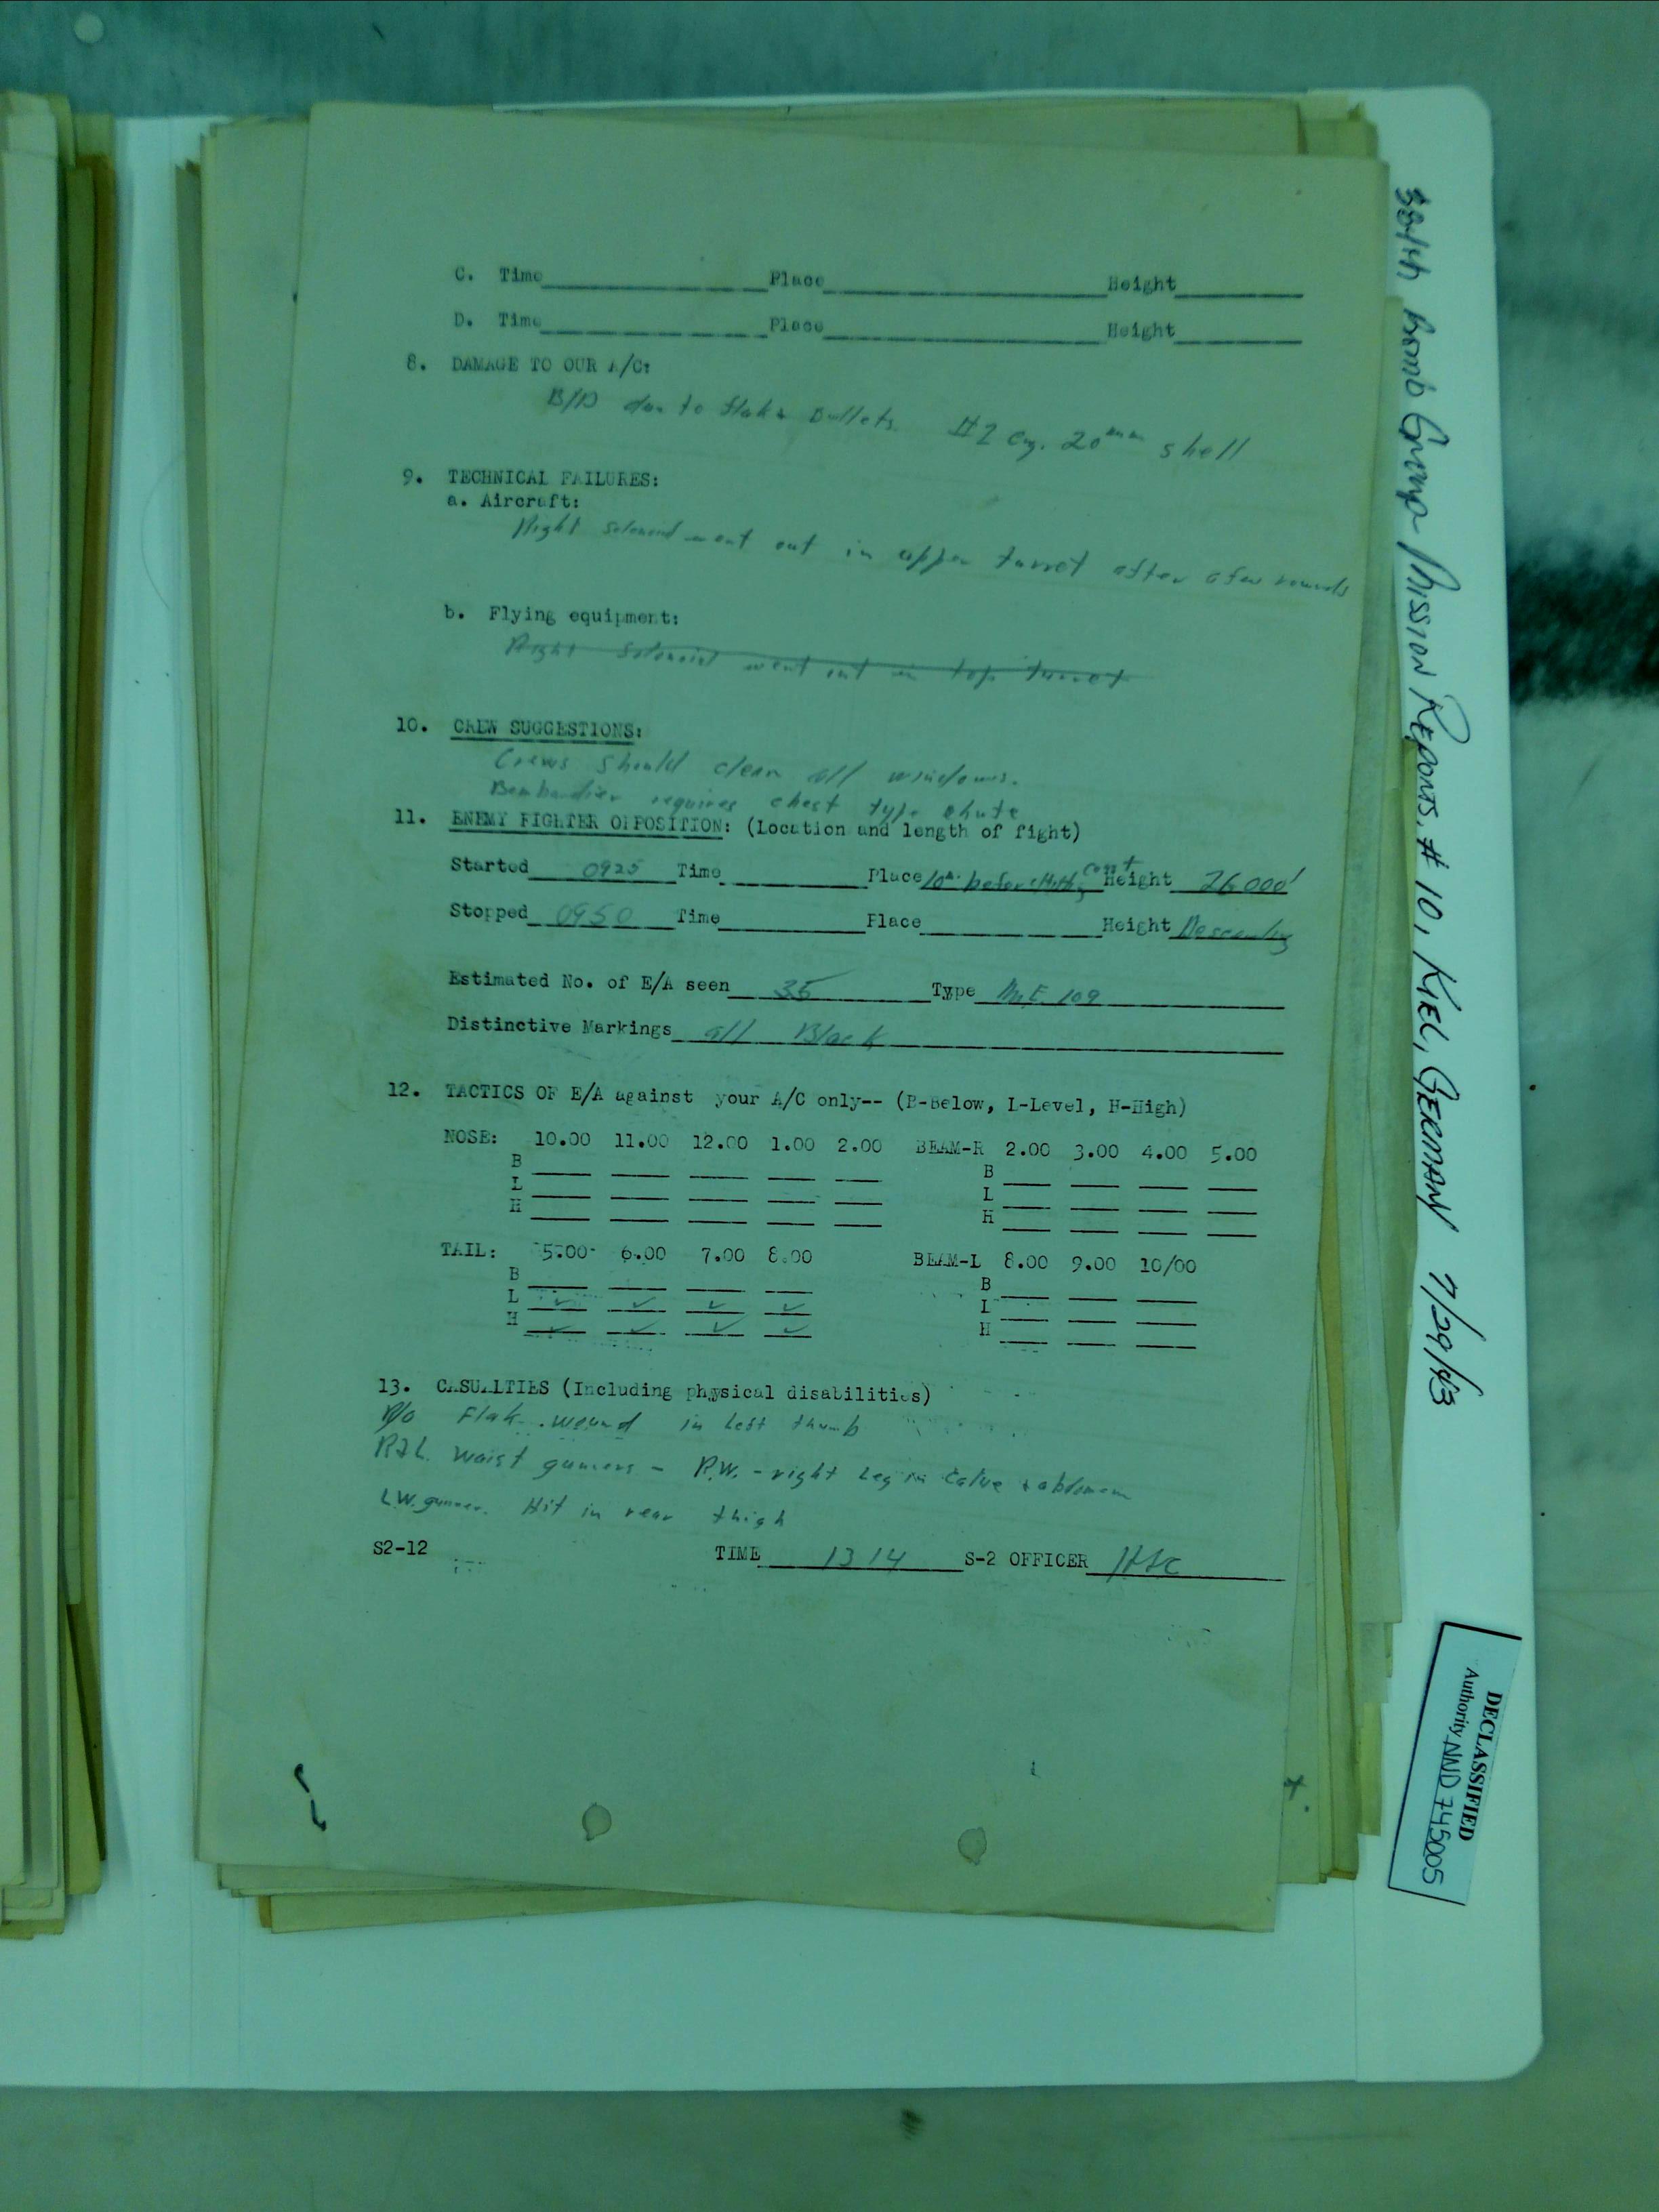 C. Time Place Height
D. Time Place Height
8. DAMAGE TO OUR A/C:
B/D due to flak & Bullets. #2 eng. 20mm shell
9. TECHNICAL FAILURES:
a. Aircraft:
Right solenoid went out in upper turret after a few rounds
b. Flying equipment:
Right Solenoid went out in top turret
10. CREW SUGGESTIONS:
Crews should clean all windows.
Bombardier requires chest type chute
11. ENEMY FIGHTER OPPOSITION: (Location and length of fight)
Started 0925 Time Place 10 m. before hitting coast Height 26000'
Stopped 0950 Time Place Height Descending
Estimated No. of E/A seen 35 Type M.E. 109
Distinctive Markings all Black
12. TACTICS OF E/A against your A/C only-- (B-Below, L-Level, H-High)
NOSE: 10.00 11.00 12.00 1.00 2.00 BEAM-R 2.00 3.00 4.00 5.00
B B
L L
H H
TAIL: 5.00 6.00 7.00 8.00 BEAM-L 8.00 9.00 10/00
B B
L ✓ ✓ ✓ ✓ L
H ✓ ✓ ✓ ✓ H
13. CASUALTIES (Including physical disabilities)
Flak wound in left thumb
R&L. waist gunners - R.W. - right Leg in calve & abdomen
L.W. gunner. Hit in rear thigh
S2-12 TIME 1314 S-2 OFFICER
384th Bomb Group Mission Reports, # 10, KIEL, GERMANY 7/29/43
DECLASSIFIED
Authority NND 745005